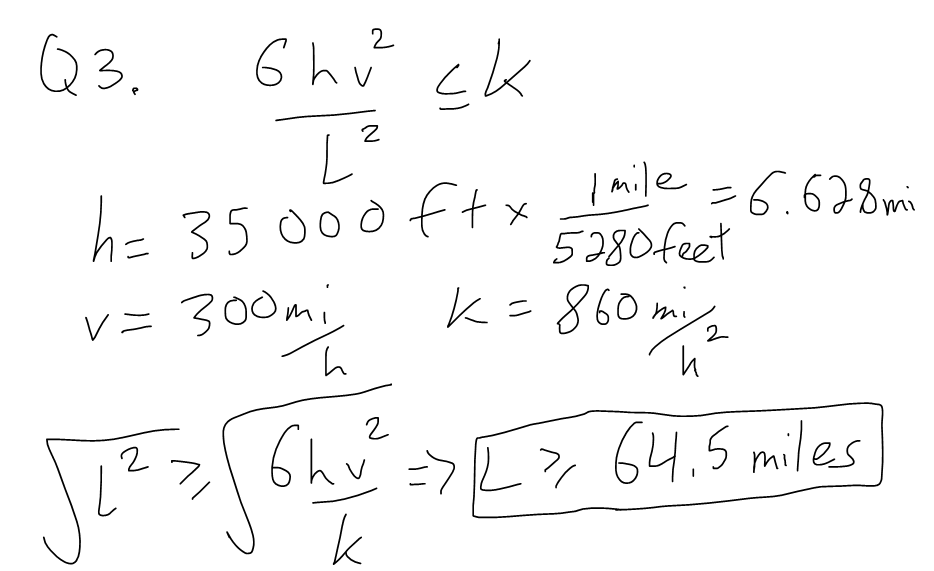 Q3. 6hv²/L² ≤ k
h = 35 000 ft x 1 mile/5280 feet = 6.628 mi
v = 300 mi/h k = 860 mi/h²
√L² ≥ √(6hv²/k) => L ≥ 64.5 miles